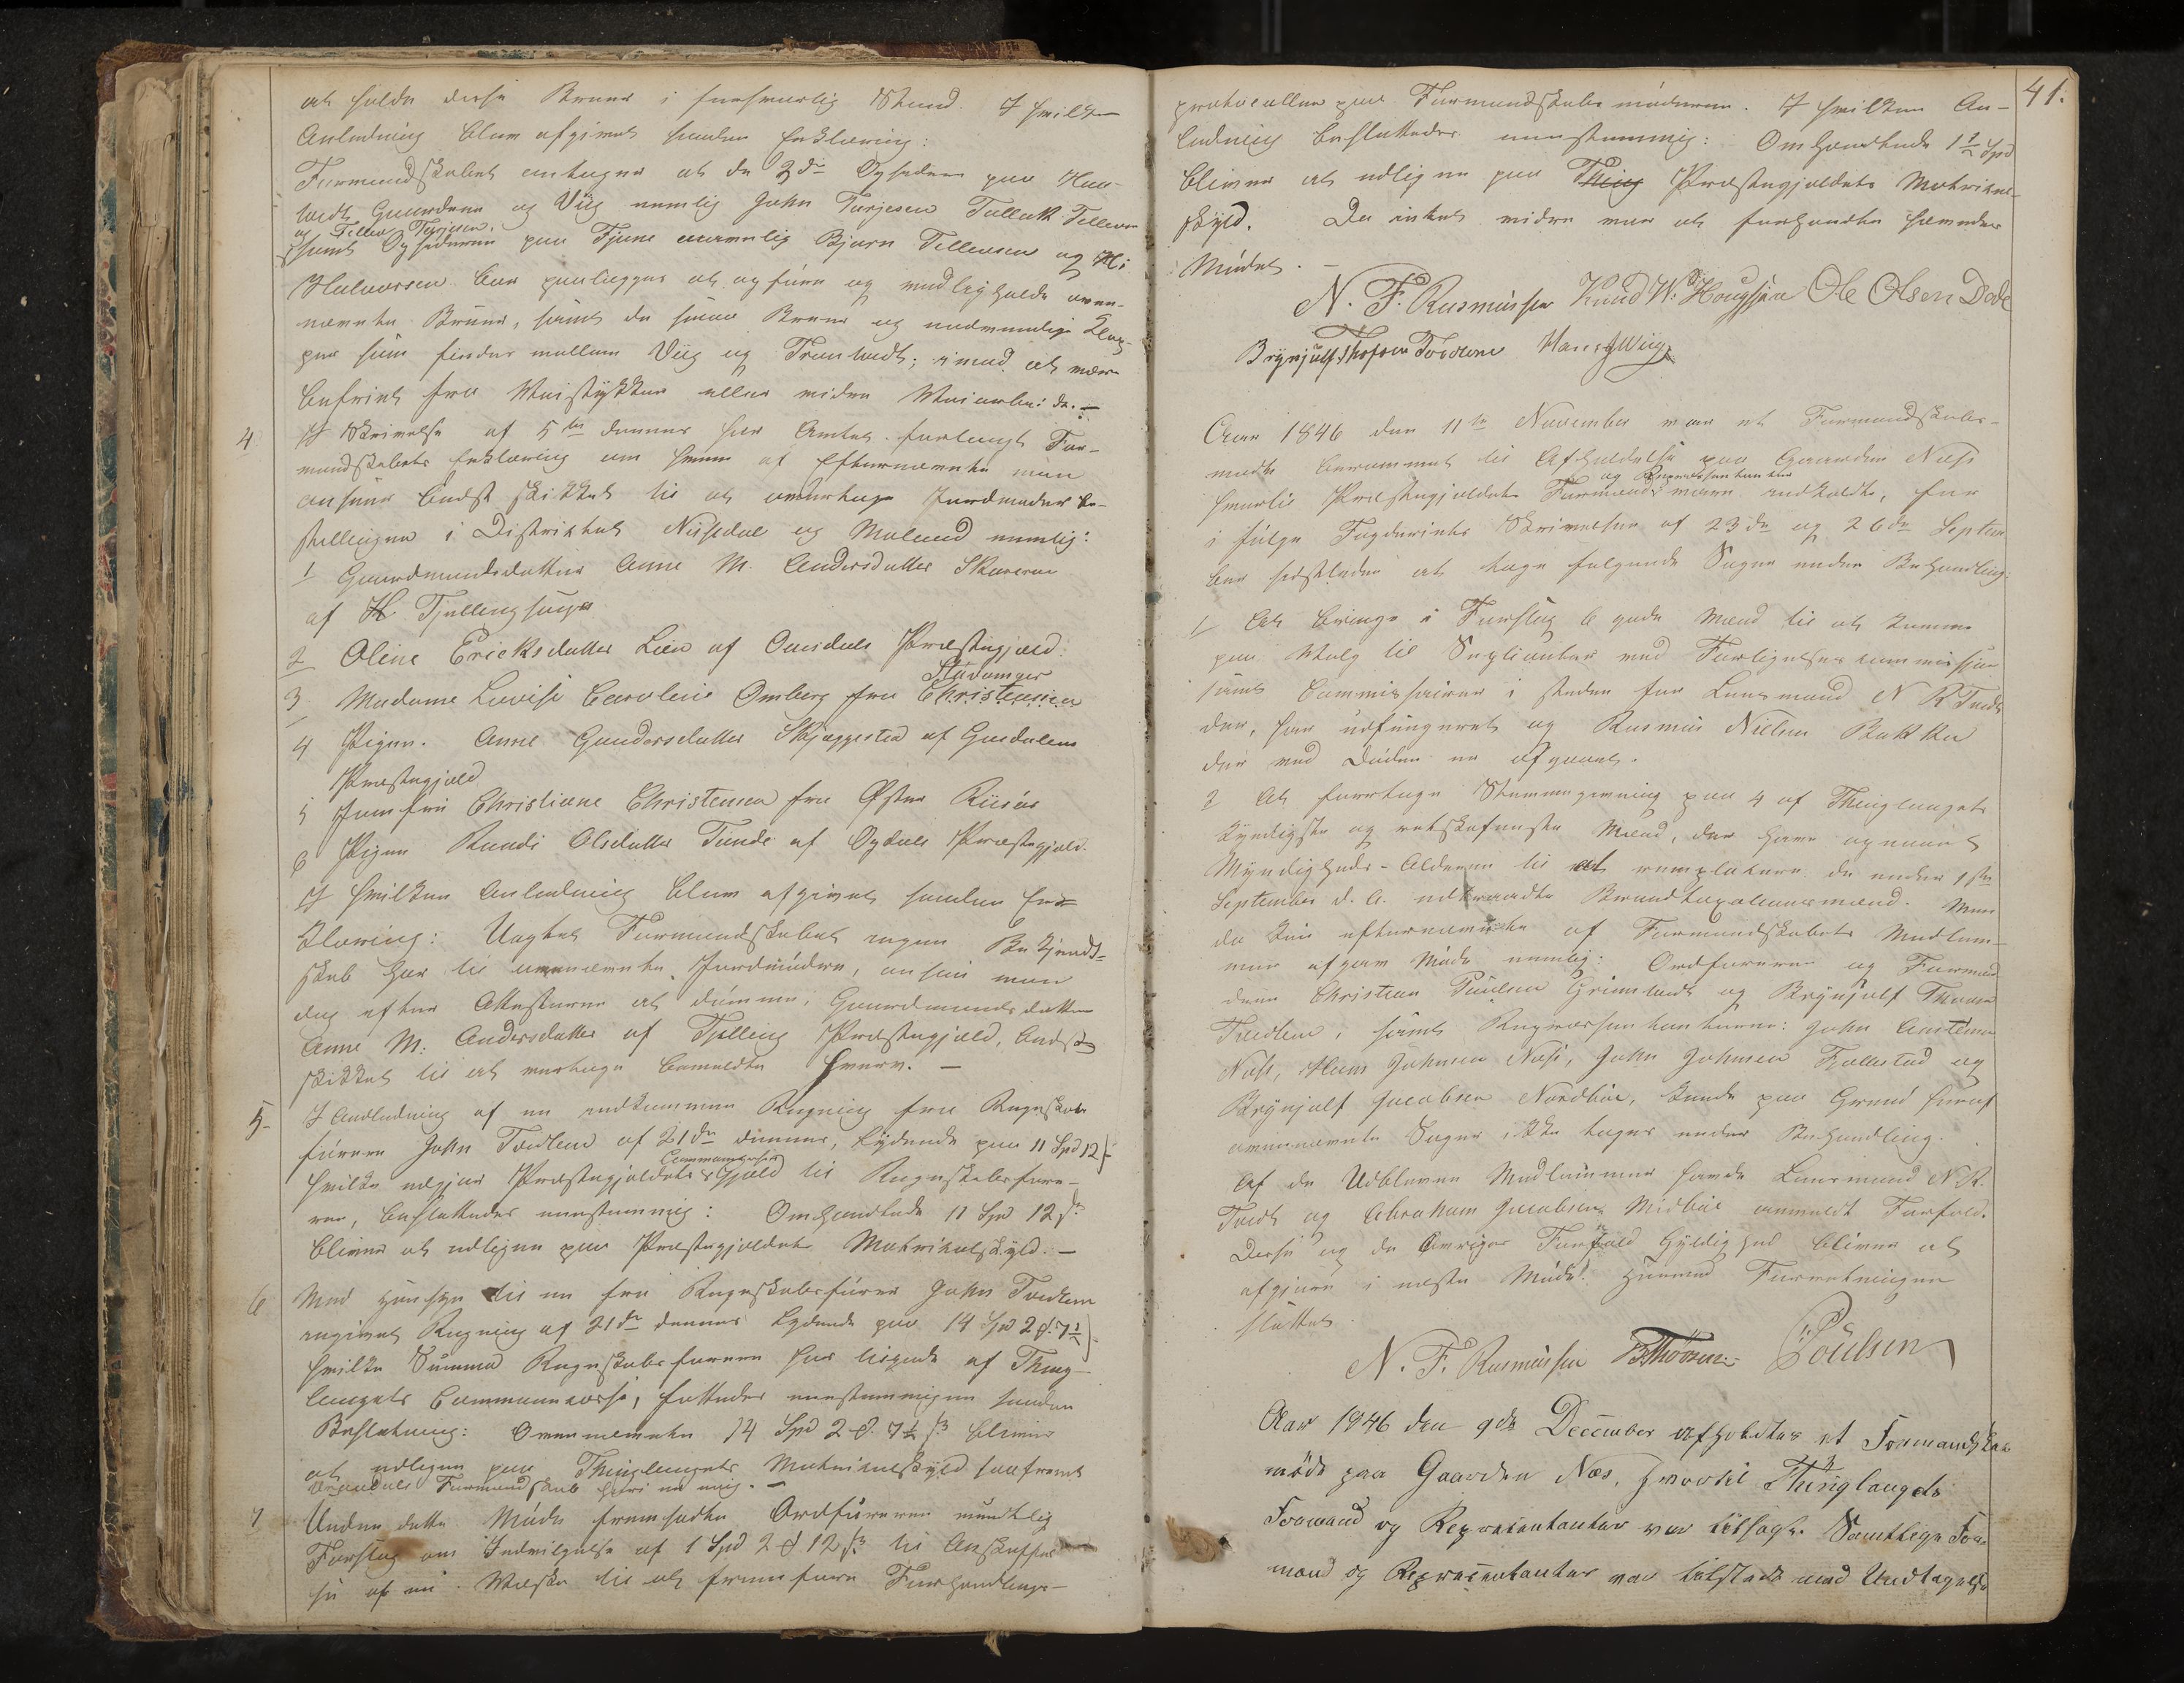 at holde disse Broer i forsvarlig Stand. I hvilken
Anledning blev afgivet saadan Erklæring:
Formandskabet antager at de 3de Opsidere paa
Gaardene og Viig nemlig John Torjesen Tallak Tellevsen
og Tellev Terjesen,
samt Opsidderne paa Fjone navnlig Bjørn Tellevsen og
Halvorsen bør paalægges at opføre og vedligeholde oven-
nævnte Broer, samt de smaa Broer og nødvendige Klop-
per som findes mellem Viig og Tronhædt; imod at være
befriet fra Veistykker eller videre Veiarbeide. —
4 I Skrivelse af 5te dennes har Amtet forlangt For-
mandskabets Erklæring om hvem af Efternævnte man
ansaae bedst skikket til at overtage Jordmoder be-
stillingen i Distriktet Nissedal og Moland nemlig:
1 Gaardmandsdatter Anne M. Andersdatter Skaaeraae
af Tjølling sogn
2 Oline Ericksdatter Lien af Præstegjæld.
Stavanger
3 Madame Lovise Caroline Omberg fra Christiania
4 Pigen. Anne Gundersdatter Skjeggestad af Gusdalens
Præstegjæld
5 Jomfru Christiane Christensen fra Øster Riisøer
6 Pigen Randi Olsdatter Tunde af Opdals Præstegjæld.
I hvilken Anledning blev afgivet saadan Er-
klæring: Uagtet Formandskabet ingen Bekjendt-
skab har til ovennævnte Jordmødre, ansees man
dog efter Attesterne at dømme, Gaardmandsdatter
Anne M. Andersdatter af Tjølling Præstegjæld, bedst
skikket til at overtage bemeldte Hverv. —
5- I Andledning af en indkommen Regning fra Regnskabs
fører John Tvedten af 21de dennes, lydende paa 11 Spd 12 ß
Communcasse
hvilke udgjør Præstegjeldets Gjæld til Regnskabsføre-
ren, besluttedes eenstemmig: Omhandlede 11 Spd 12 ß
bliver at udligne paa Præstegjældets Matrikulskyld. —
6 Med Hensyn til en fra Regnskabsfører John Tvedten
indgivet Regning af 21de dennes Lydende paa 14 Spd 2 ß 7½
hvilke Summa Regnskabsføreren har tilgode af Thing-
laugets Communcasse, fattedes eenstemmigen saadan
Beslutning: Ovennævnte 14 Spd 2 ₰ 7½ ß bliver
at udligne paa Thinglaugets Matrikulskyld saafremt
Formandskab heri er enig. —
7 Under dette Møde fremsadte Ordføreren mundtlig
Forslag om Indvilgelse af 1 Spd 2 ₰ 12 ß til Anskaffel
se af en Væske til at fremføre Forhandlings-
41.
protocollen paa Formandskabs møderne. I hvilken An-
ledning besluttedes eenstemmig: Omhandlede 1½ Spd
bliver at udligne paa Thing Præstegjældets Matrikul-
skyld. Da intet videre var at forhandle hævedes
Mødet. —
N. F. Rasmussen Knud W. Hougsjaa Ole Olsen Dode
Brynjulf Thofsen Tvedtene Hans Wiig
Aar 1846 den 11te November var et Formandskabs-
møde berammet til Afholdelse paa Gaarden Næss
og Repræsentanter
hvortil Præstegjældets Formænd vare indkaldte, for
i følge Fogderiets Skrivelser af 23de og 26de Septem
ber sidstleden at tage følgende Sager under Behandling:
1/ At bringe i Forslag 6 gode Mænd til at komme
paa Valg til Suplianter ved Forligelsescommission
samt Commissairer i steden for Lensmand N R Tvedt
der, har udfungeret og Rasmus Nielsen Bakka
der ved Døden er afgaaet.
2 At foretage Stemmegivning paa 4 af Thinglaugets
kyndigste og retskafneste Mænd, der have opnaaet
Myndigheds-Alderen til at remplacere de under 1ste
September d. A. udtraadte Brandtaxationsmænd. Men
da kun efternævnte af Formandskabets Medlem-
mer afgav Møde nemlig: Ordføreren og Formænd-
dene Christian Poulsen Grimstvedt og Brynjulf Thovsen
Tvedtene, samt Repræsentanterne: John Austensen
Næss, Hans Johnsen Næss, John Johnsen Fjollestad og
Brynjulf Jacobsen Nordbøe, kunde paa Grund heraf
ovennævnte Sager ikke tages under Behandling.
Af de Udblevne Medlemmer havde Lensmand N. R.
Tvedt og Abraham Jacobsen Midbøe anmeldt Forfald.
Disse og de øvriges Forfald Gyldighed bliver at
afgjøre i næste Møde. Hermed Forretningen
sluttet.
N. F. Rasmussen BThovsen Poulsen
Aar 1846 den 9de December afholdtes et Formandskabs
møde paa Gaarden Næs, hvortil Thinglaugets
Formænd og Repræsentanter var tilsagte. Samtlige For-
mænd og Repræsentanter var tilstede med Undtagelse